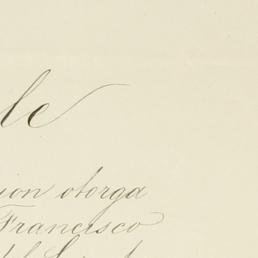 le
ion otorga
Francisco